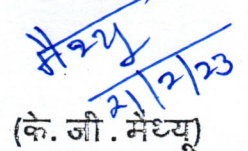 मैथ्यु
21/2/23
(के. जी. मैथ्यू)